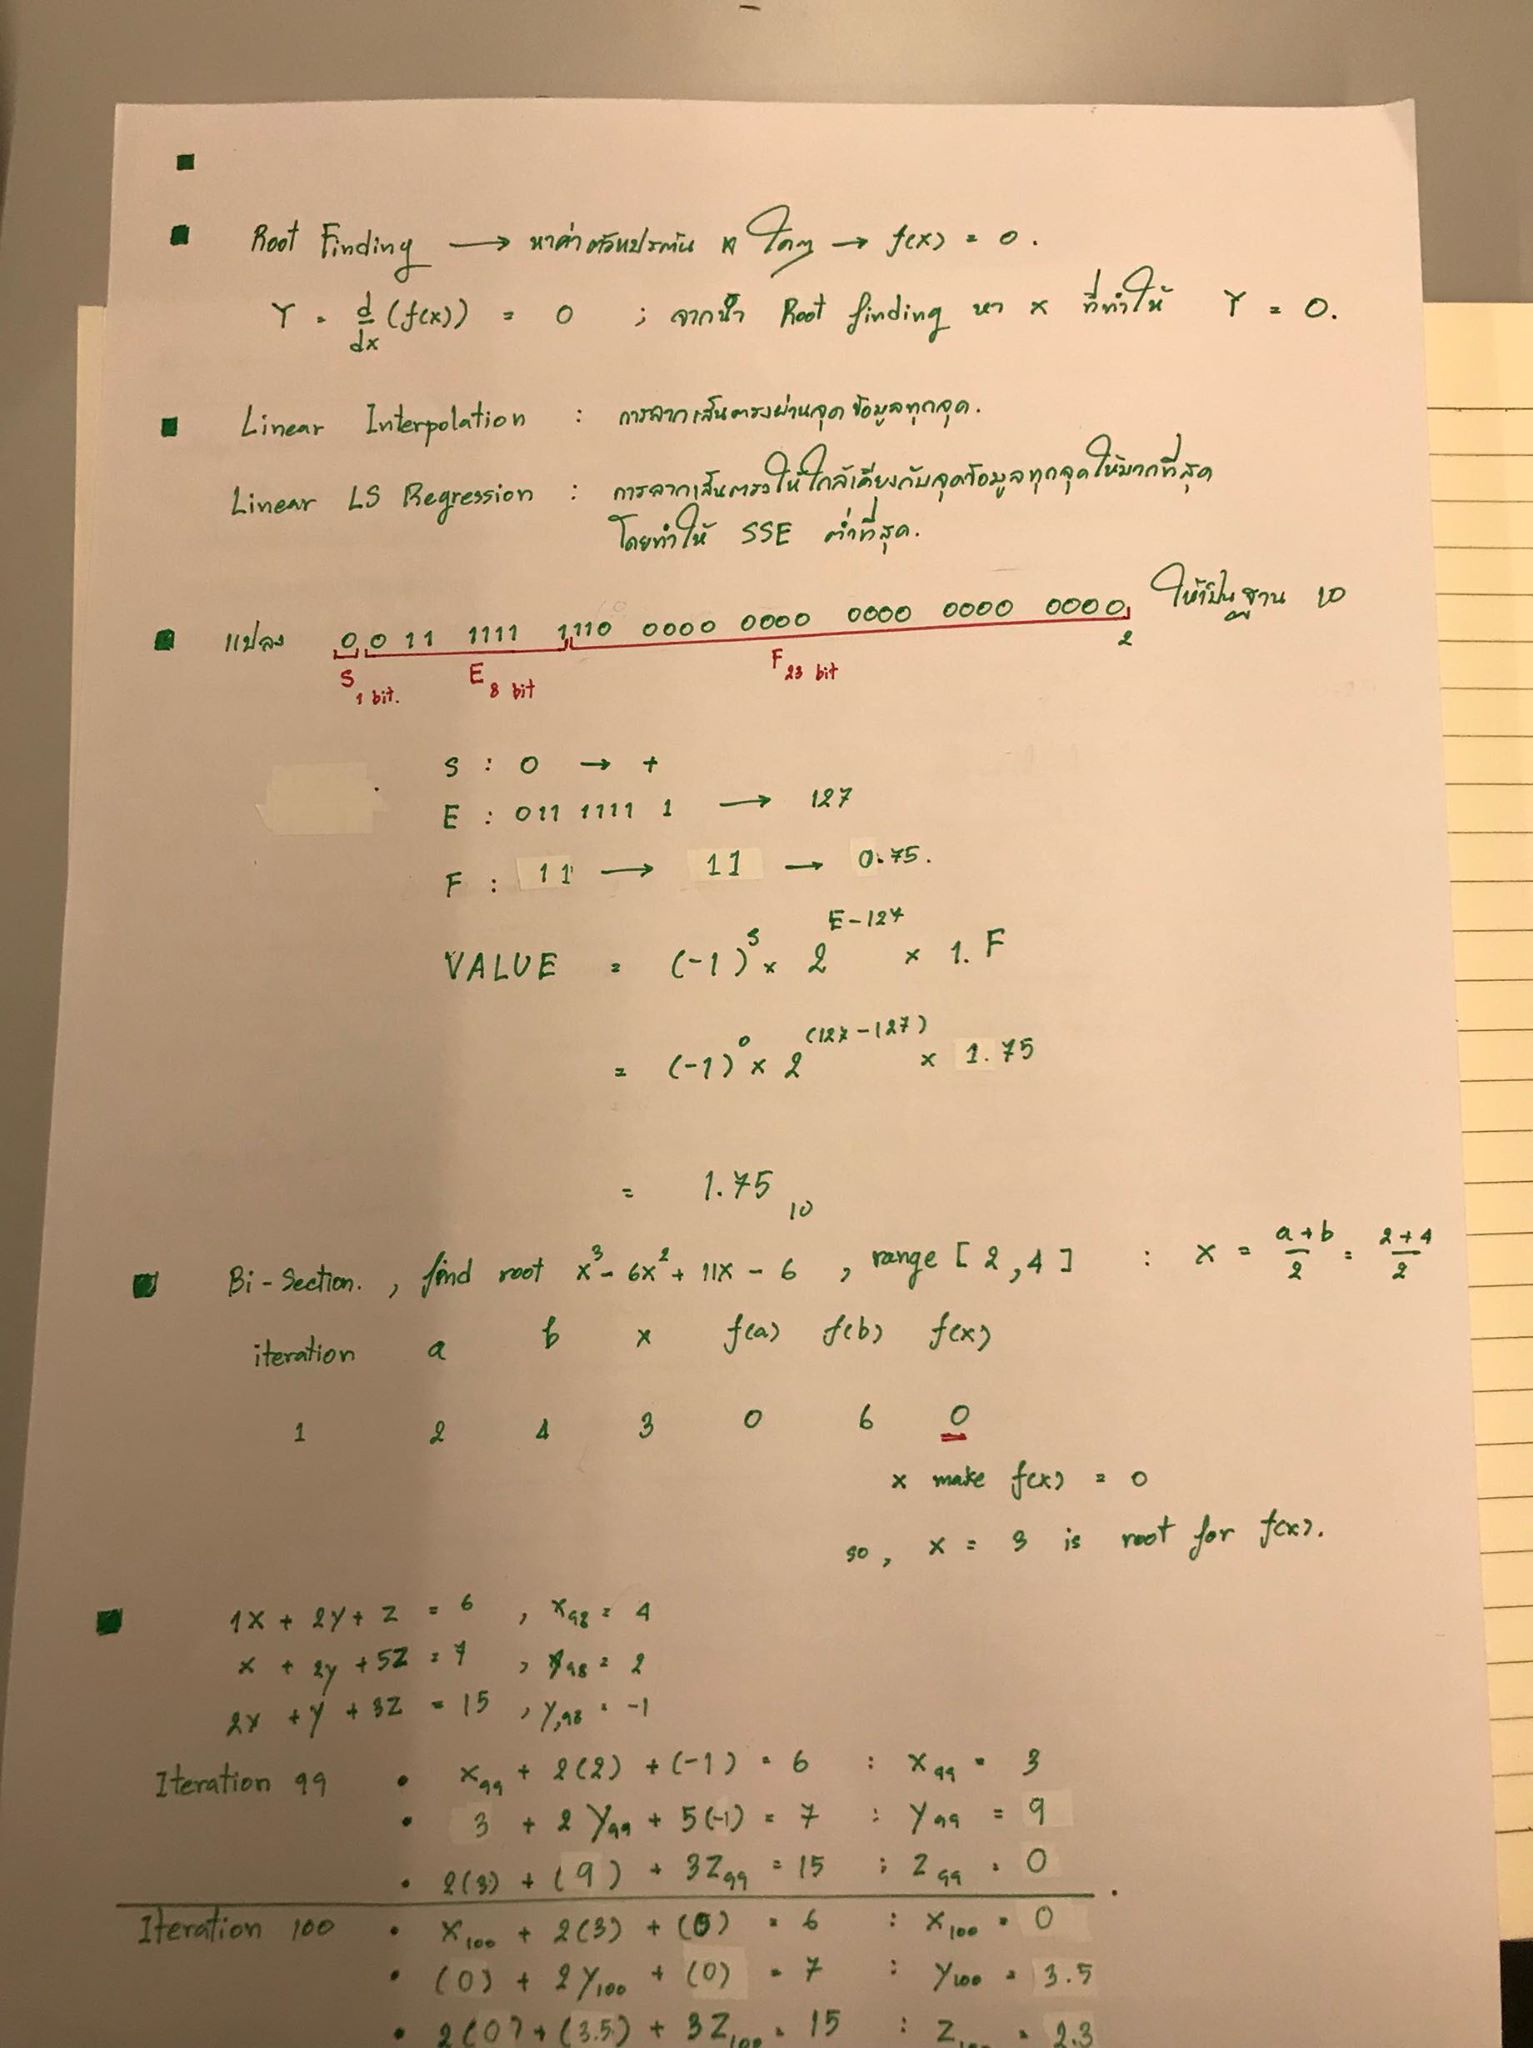 Root Finding → หาค่าตัวแปรต้น x ใดๆ → f(x) = 0.
Y = d/dx (f(x)) = 0 ; จากนั้น Root finding หา x ที่ทำให้ Y = 0.
Linear Interpolation : การลากเส้นตรงผ่านจุดข้อมูลทุกจุด.
Linear LS Regression : การลากเส้นตรงให้ใกล้เคียงกับจุดข้อมูลทุกจุดให้มากที่สุด
โดยทำให้ SSE ต่ำที่สุด.
แปลง 0 0 11 1111 1110 0000 0000 0000 0000 0000 2 ให้เป็นฐาน 10
S 1 bit. E 8 bit F 23 bit
S : 0 → +
E : 011 1111 1 → 127
F : 11 → 11 → 0.75.
VALUE = (-1)^S × 2^(E-127) × 1.F
= (-1)^0 × 2^(127-127) × 1.75
= 1.75 10
Bi-Section. , find root x^3 - 6x^2 + 11x - 6 , range [2,4] : x = a+b/2 = 2+4/2
iteration a b x f(a) f(b) f(x)
1 2 4 3 0 6 0
x make f(x) = 0
so, x = 3 is root for f(x).
1X + 2Y + Z = 6 , X98 = 4
x + 2y + 5Z = 7 , y98 = 2
2X + Y + 3Z = 15 , y,98 = -1
Iteration 99 • X99 + 2(2) + (-1) = 6 : X99 = 3
• 3 + 2Y99 + 5(-1) = 7 : Y99 = 9
• 2(3) + (9) + 3Z99 = 15 : Z99 = 0
Iteration 100 • X100 + 2(3) + (0) = 6 : X100 = 0
• (0) + 2Y100 + (0) = 7 : Y100 = 3.5
• 2(0) + (3.5) + 3Z100 = 15 : Z100 = 2.3